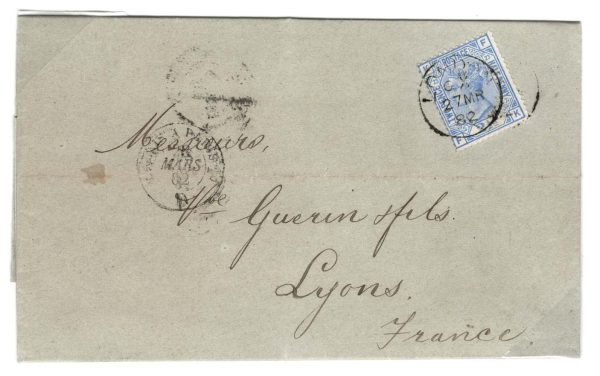 LONDON
27 MR
82
F
K
F
K
MARS
82
Messieurs,
Vve Guerin & fils.
Lyons.
France.